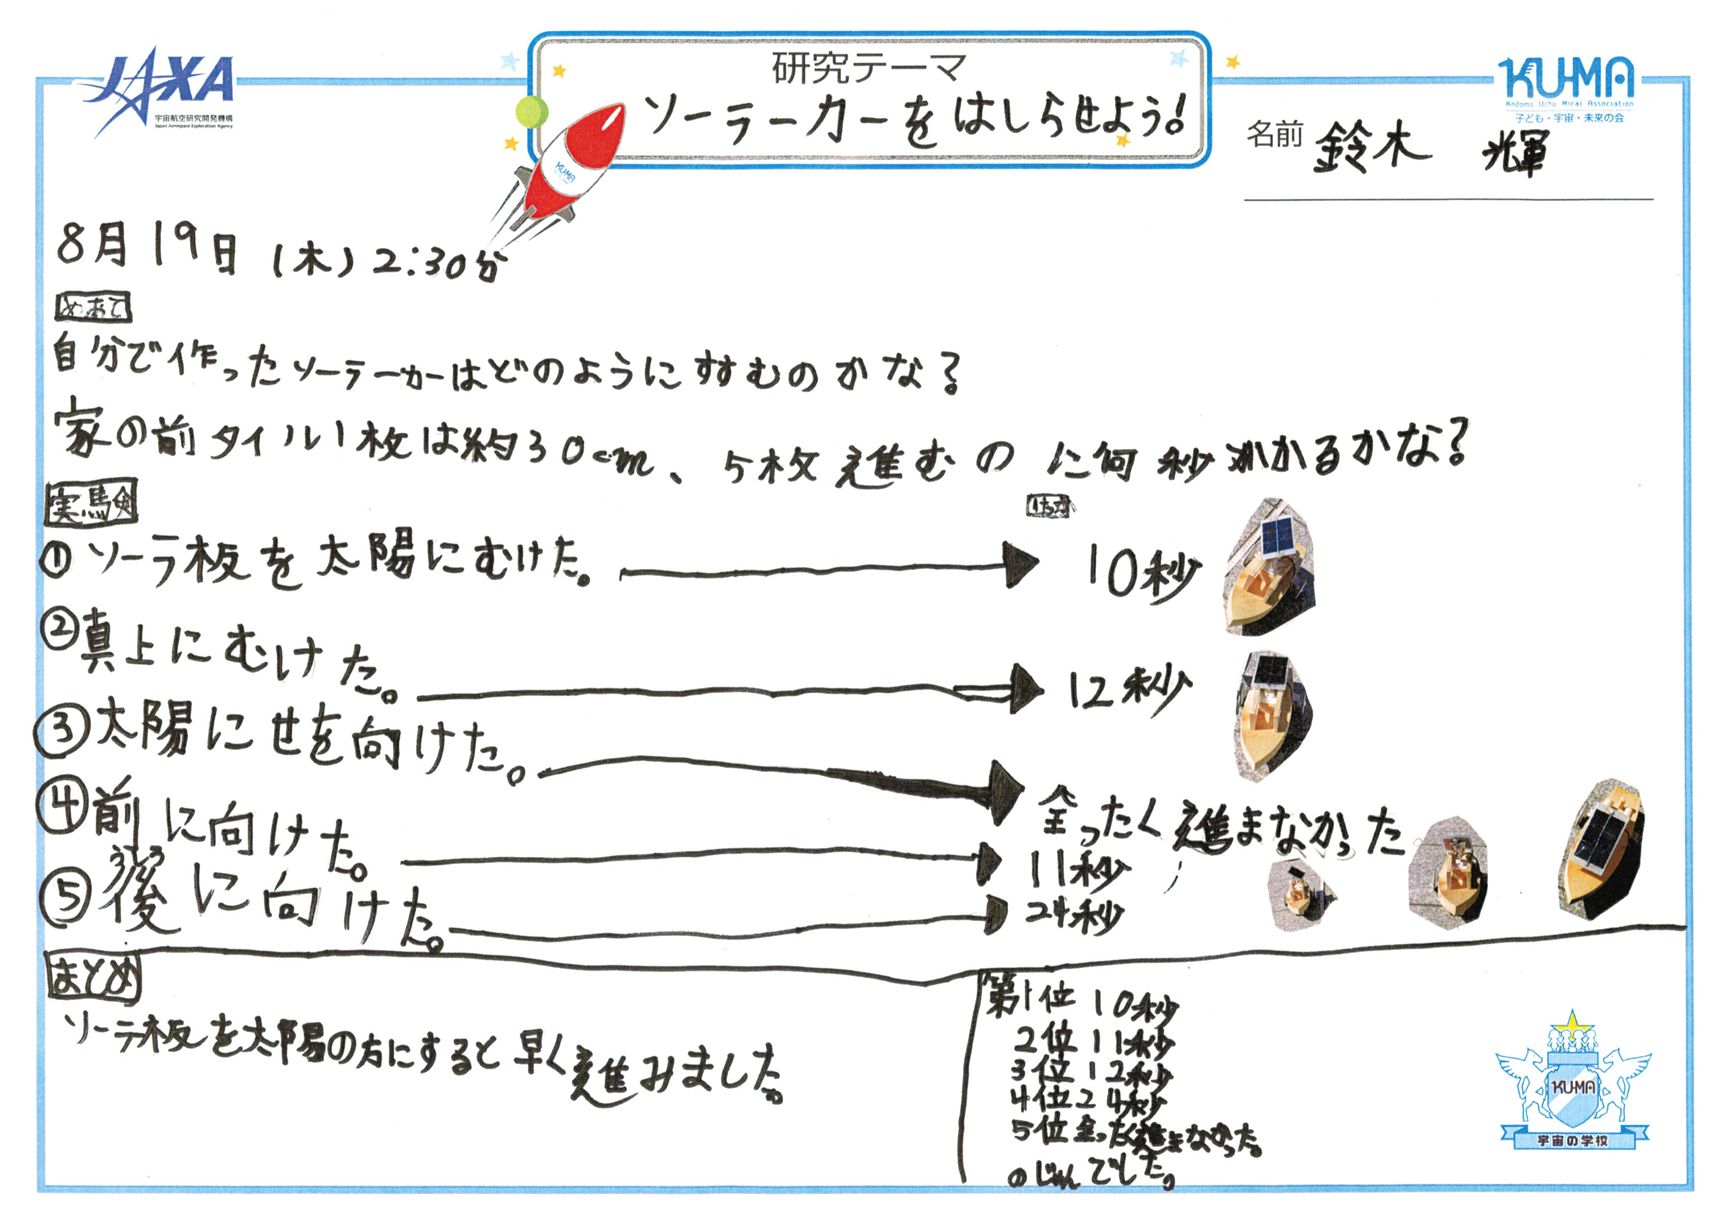 JAXA
宇宙航空研究開発機構
Japan Aerospace Exploration Agency
研究テーマ
ソーラーカーをはしらせよう!
KUMA
KU-MA
Kodomo Uchu Mirai Association
子ども・宇宙・未来の会
名前 鈴木 輝
8月19日(木)2:30分
めあて
自分で作ったソーラーカーはどのようにすすむのかな?
家の前タイル1枚は約30cm、5枚進むのに何秒かかるかな?
実験
けっか
①ソーラ板を太陽にむけた。 10秒
②真上にむけた。 12秒
③太陽にせを向けた。 全ったく進まなかった
④前に向けた。 11秒
うしろ
⑤後に向けた。 24秒
まとめ
ソーラ板を太陽の方にすると早く進みました。
第1位 10秒
2位 11秒
3位 12秒
4位 24秒
5位 全ったく進まなかった。
のじゅんでした。
KU-MA
宇宙の学校